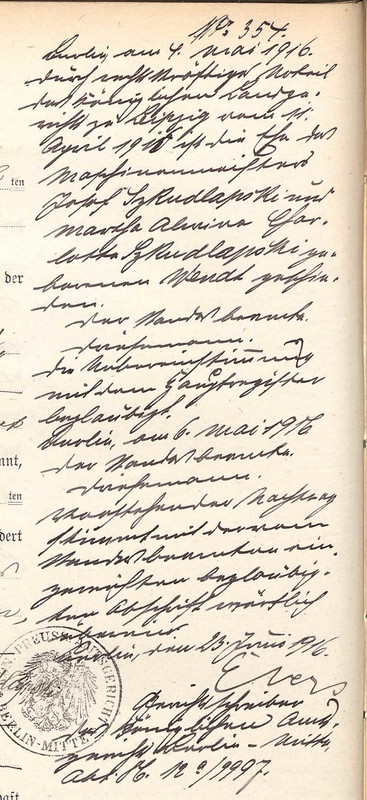 No. 354.
Berlin am 4. Mai 1916.
Durch rechtskräftiges Urteil
des Königlichen Landge-
richts zu Leipzig vom 11.
April 1916 ist die Ehe des
Maschinenmeisters
Josef Szkudlapski und
Martha Alwine Char-
lotte Szkudlapski ge-
borenen Wendt geschie-
den.
Der Standesbeamte.
Die Übereinstimmung
mit dem Hauptregister
beglaubigt.
Berlin, am 6. Mai 1916
Der Standesbeamte.
Vorstehender Nachtrag
stimmt mit der vom
Standesbeamten ein-
gereichten beglaubig-
ten Abschrift wörtlich
überein.
Berlin, den 23. Juni 1916.
Evers
Gerichtsschreiber
des Königlichen Amts-
gerichts Berlin-Mitte
Abt.
ten
der
nnt,
ten
dert
PREUSS. AMTSGERICHT
BERLIN-MITTE
haft